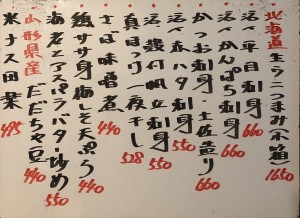 北海道生うにつまみ(小箱) 1650
活〆平目刺身 660
活〆かんぱち刺身 660
かつお刺身・土佐造り 660
活〆赤ハタ刺身 550
活〆殻付帆立刺身 550
真ほっけ一夜干し 528
さば味噌煮 440
鶏ササ身梅しそ天ぷら 440
海老とアスパラバター炒め 550
山形県産だだちゃ豆 440
米ナス田楽 495